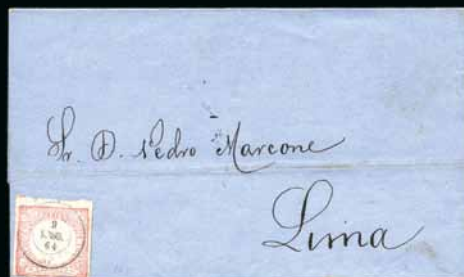 Sr. D. Pedro Marcone
Lima